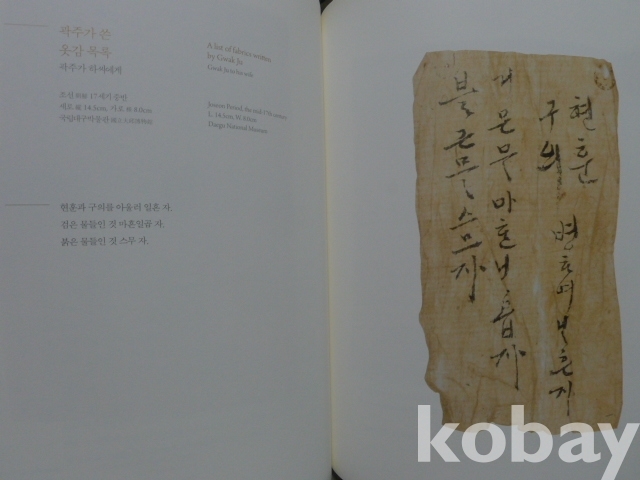 곽주가 쓴
옷감 목록
곽주가 하씨에게
A list of fabrics written
by Gwak Ju
Gwak Ju to his wife
조선 朝鮮 17세기 중반
세로 縱 14.5cm, 가로 橫 8.6cm
국립대구박물관 國立大邱博物館
Joseon Period, the mid-17th century
L. 14.5cm, W. 8.6cm
Daegu National Museum
현훈과 구의를 아울러 일흔 자.
검은 물들인 것 마흔일곱 자.
붉은 물들인 것 스무 자.
현훈
구의
블근믈 스므자
kobay